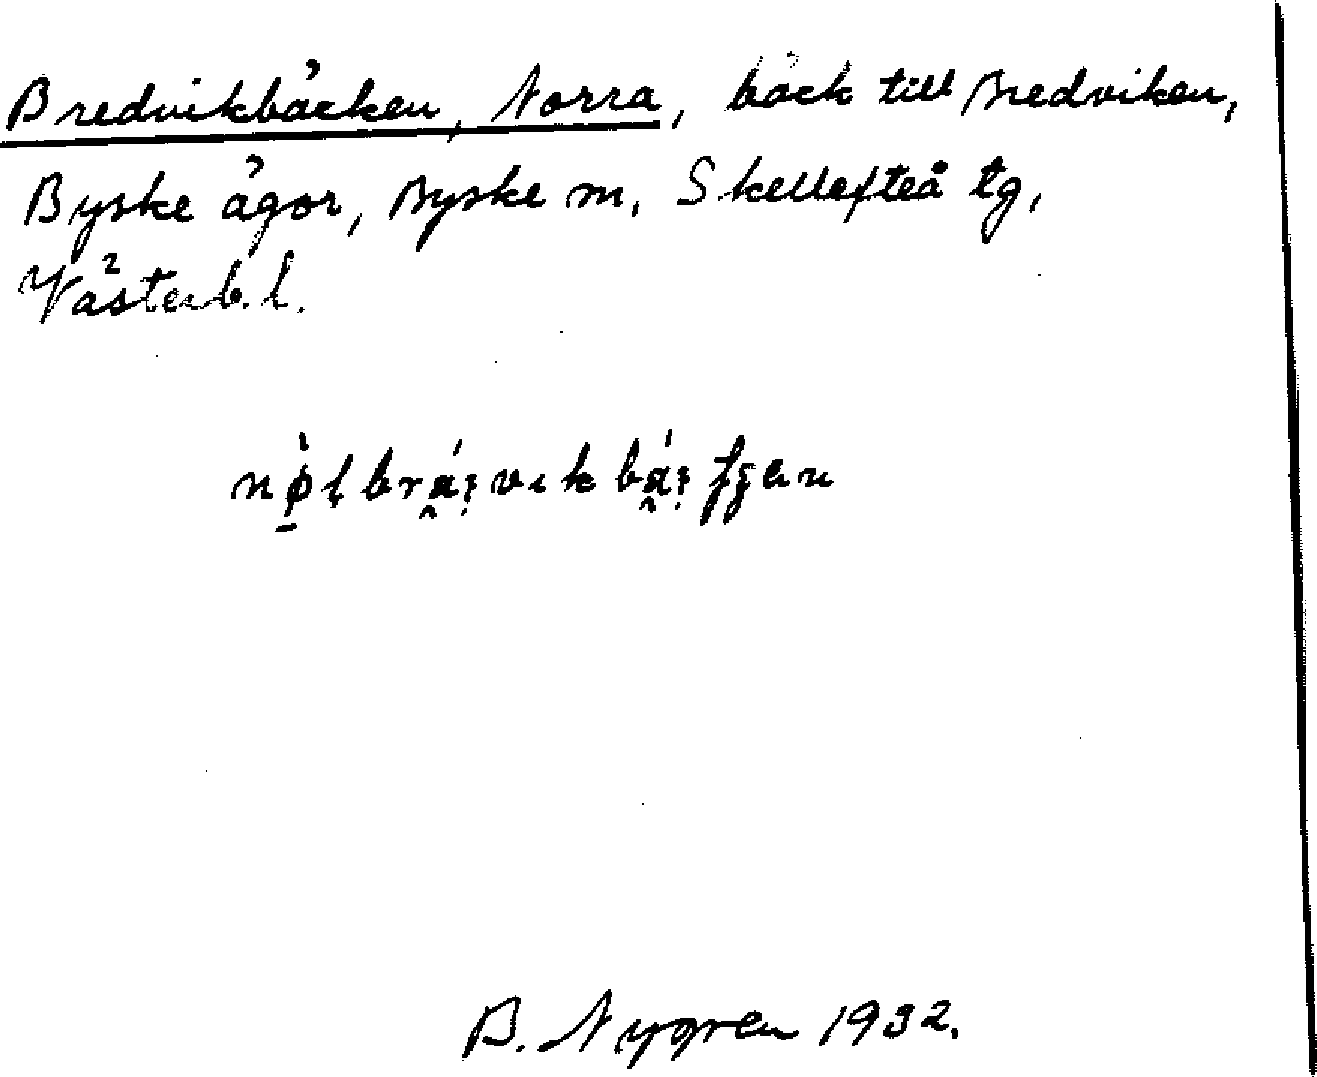 Bredvikbäcken, Norra, bäck till Bredviken,
Byske ägor, Byske sn, Skellefteå tg,
Västerb. l.
B. Nygren 1932.